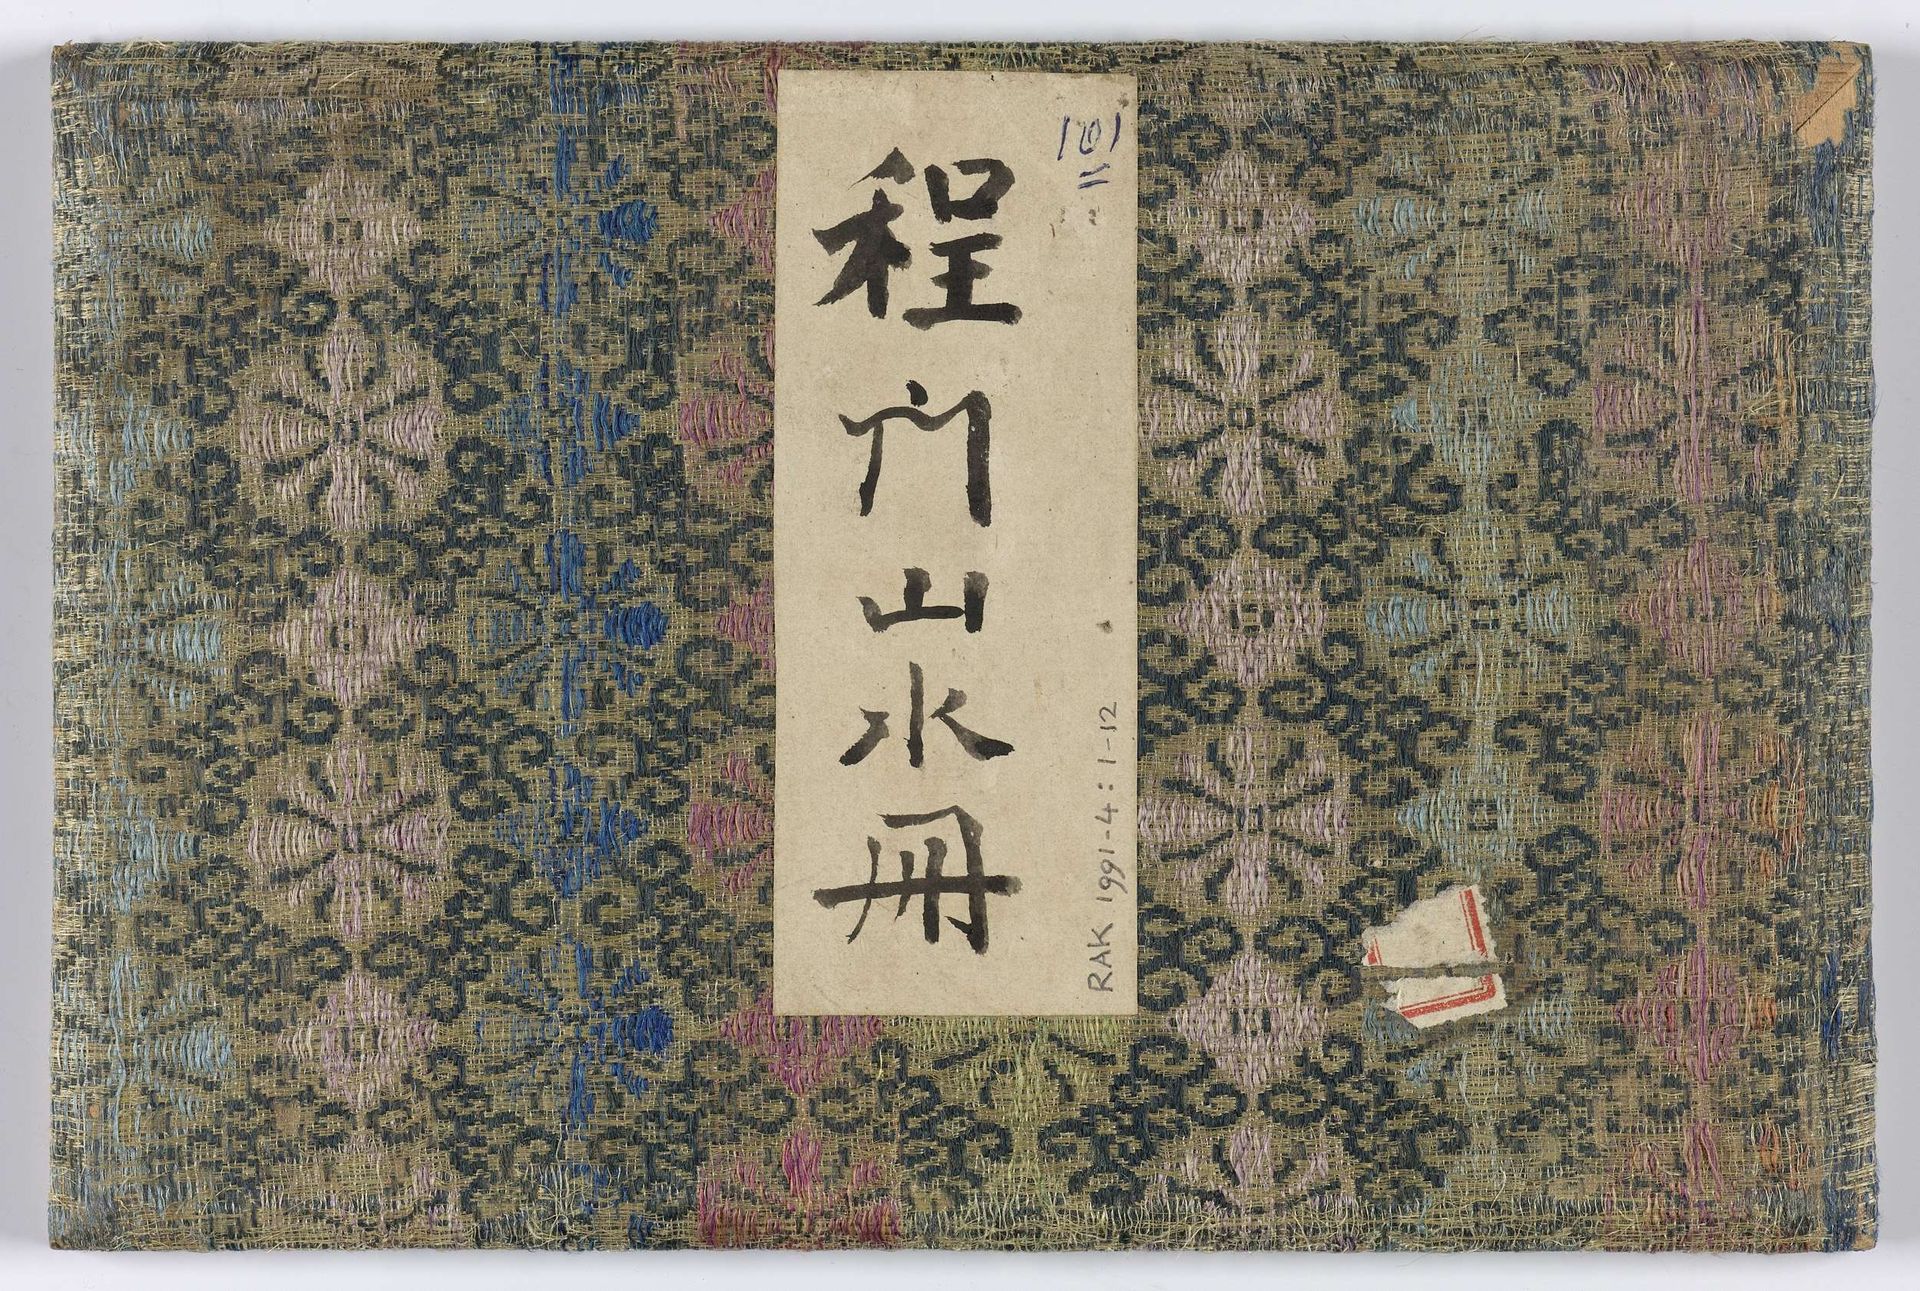 程门山水册
101
RAK 1991-4:1-12